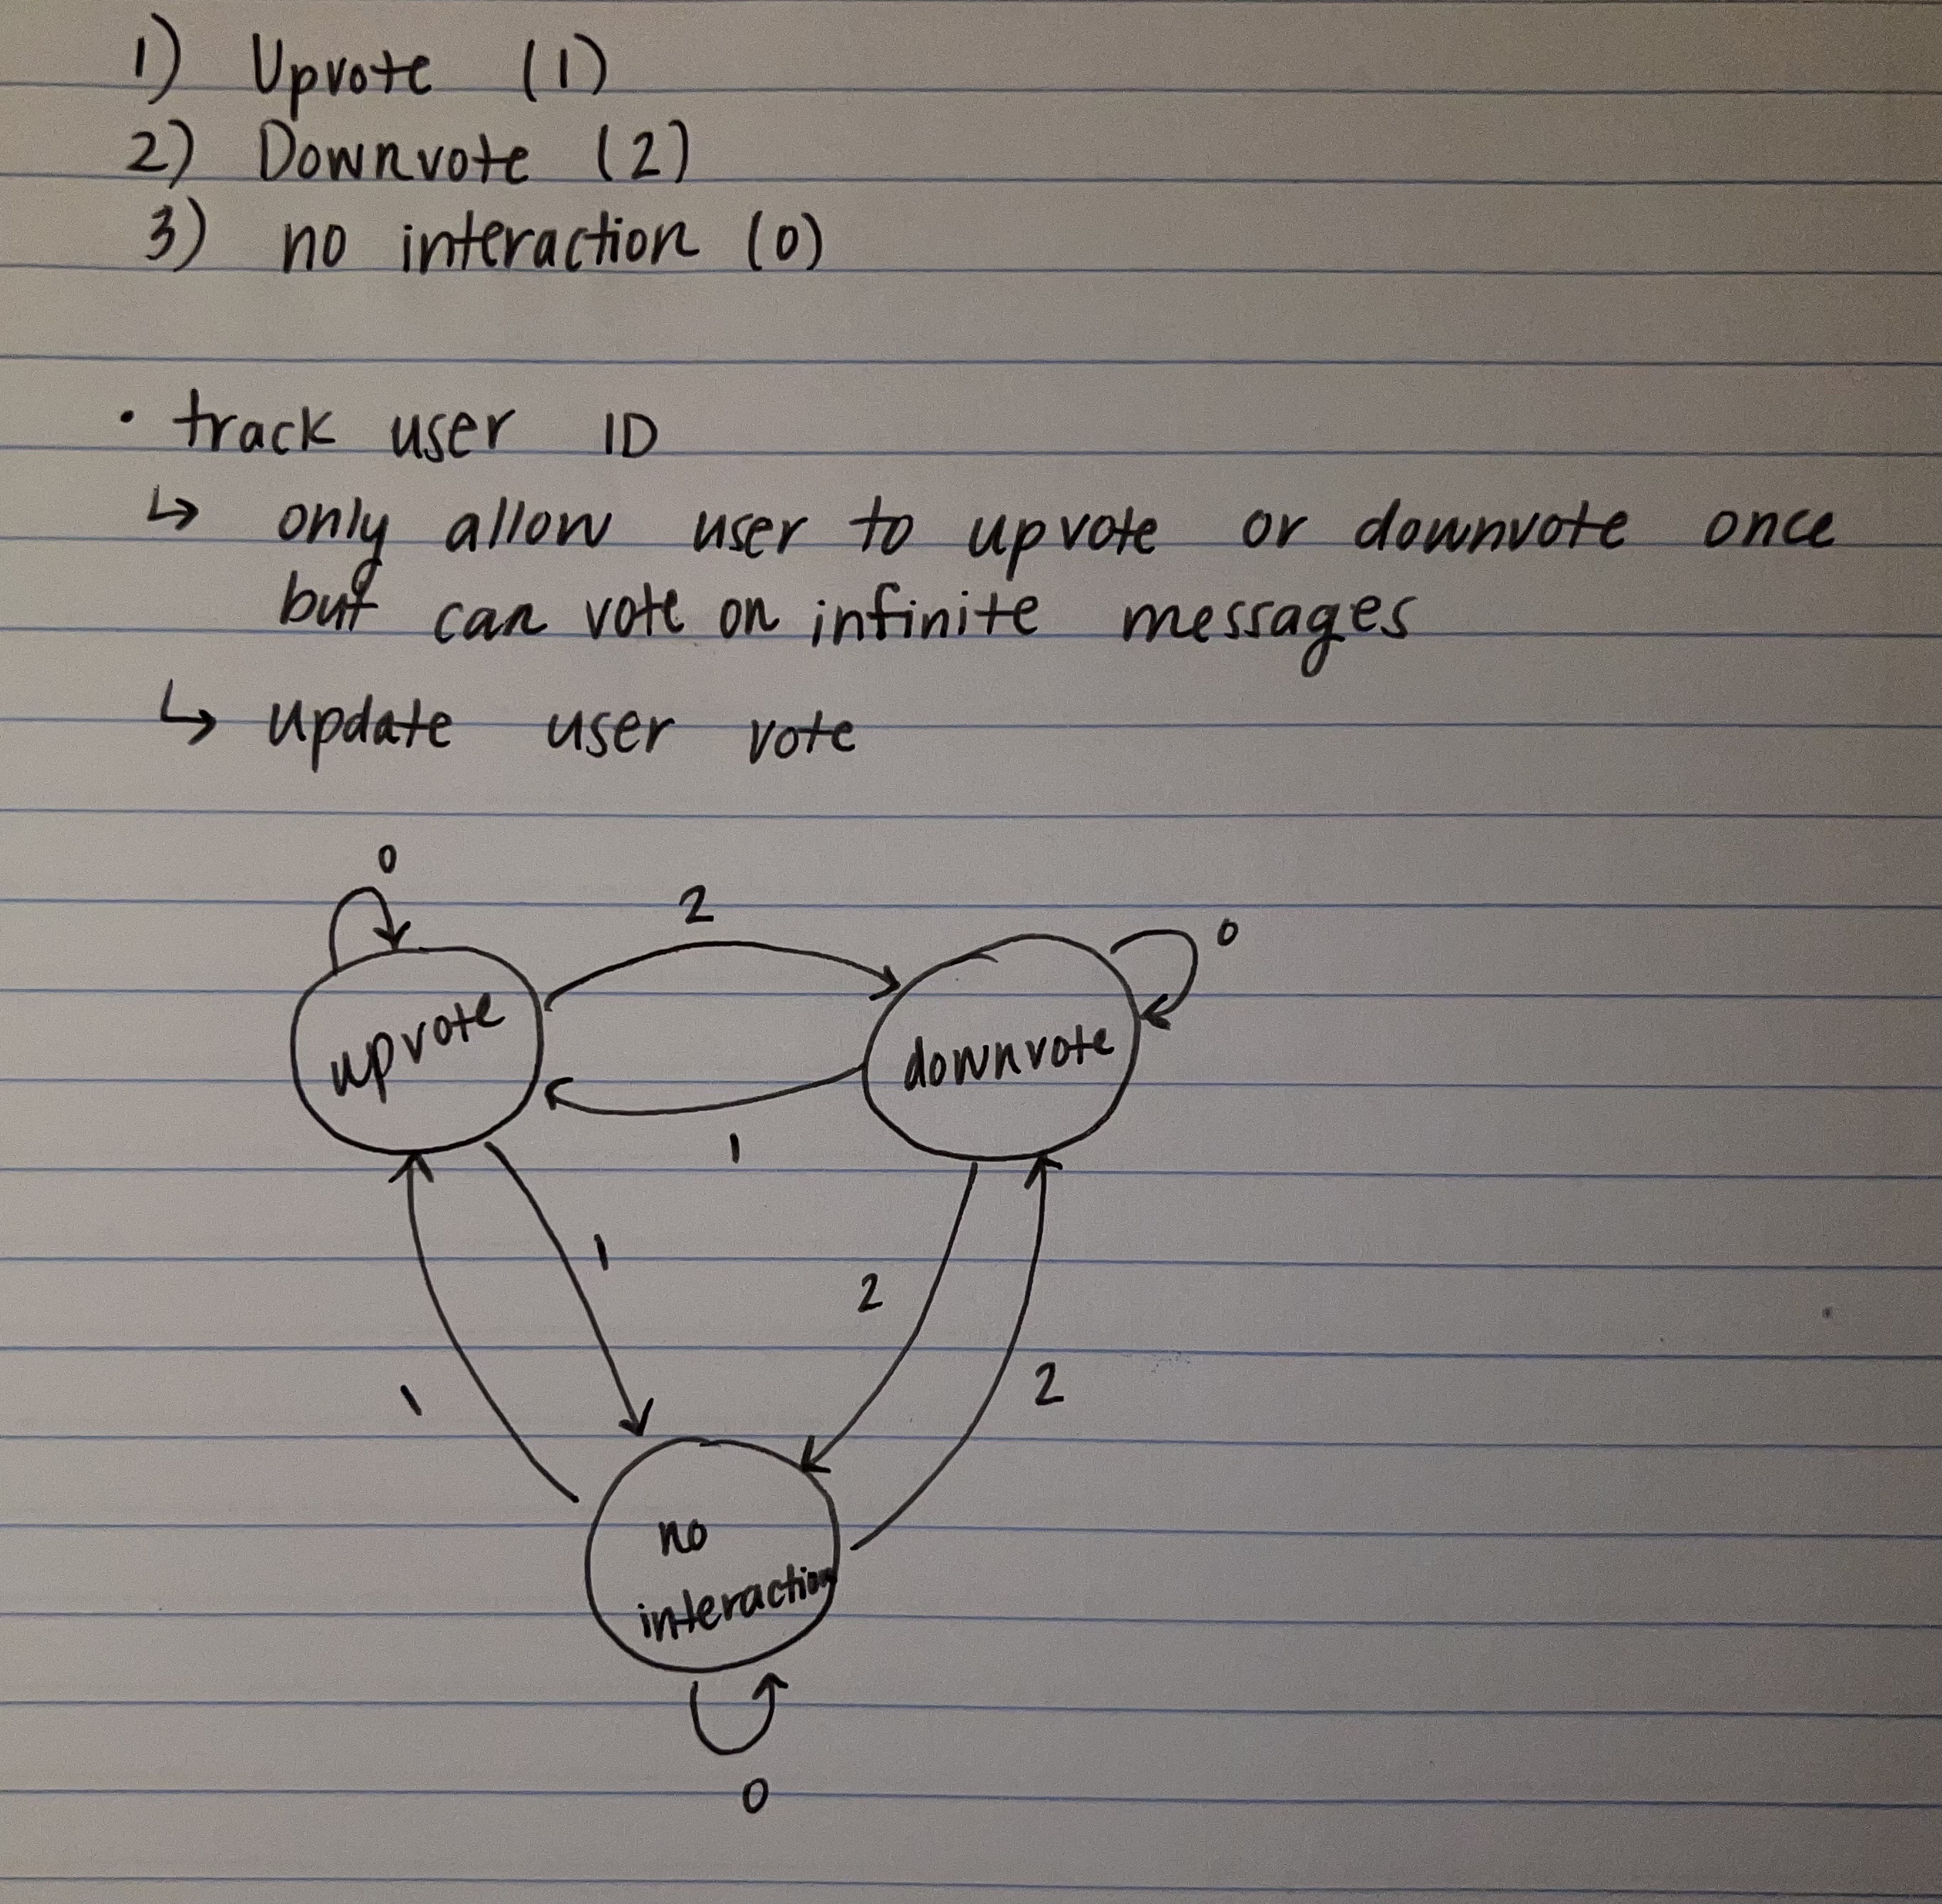 1) Upvote (1)
2) Downvote (2)
3) no interaction (0)
• track user ID
↳ only allow user to upvote or downvote once
but can vote on infinite messages
↳ update user vote
0
2
0
upvote
downvote
1
1
2
1
2
no
interaction
0